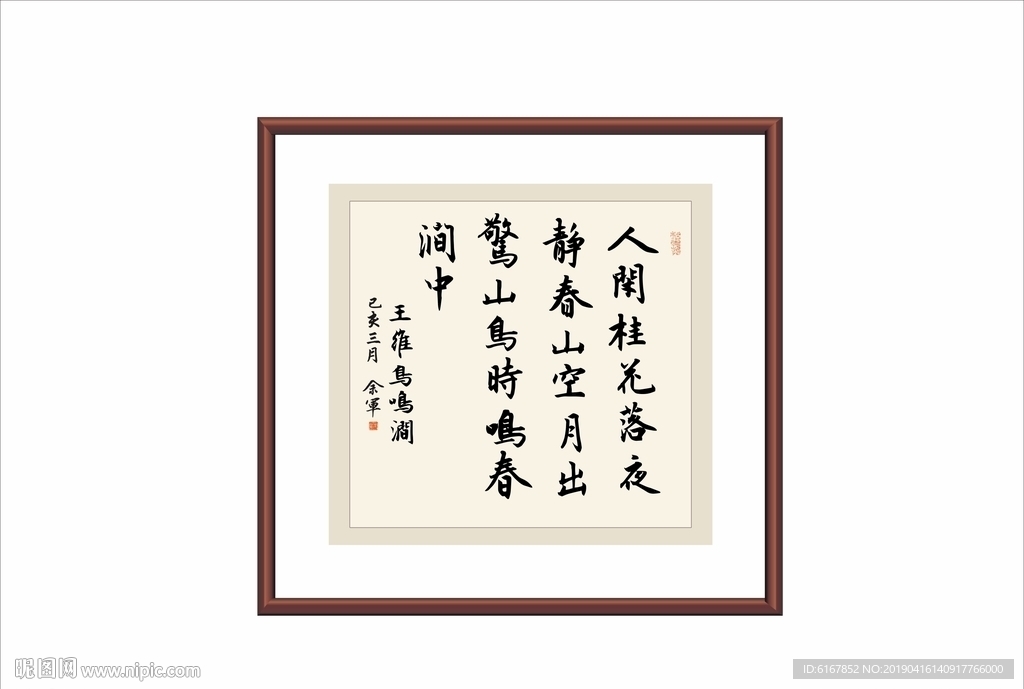 人閑桂花落夜
静春山空月出
驚山鳥時鳴春
澗中
王維鳥鳴澗
己亥三月 余軍
昵图网 www.nipic.com
ID:6167852 NO:20190416140917766000